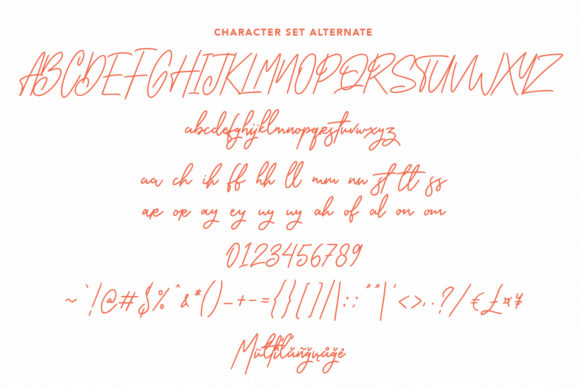 CHARACTER SET ALTERNATE
ABCDEFGHIJKLMNOPQRSTUVWXYZ
abcdefghijklmnopqrstuvwxyz
aa ch ih ff hh ll mm nn st tt ss
ar or ay ey uy uy ah of al on om
0123456789
~`!@#$%^&*()_-+={}[]|\:;"”'<>,.?/€£¤¥
Multilăñğųåġė